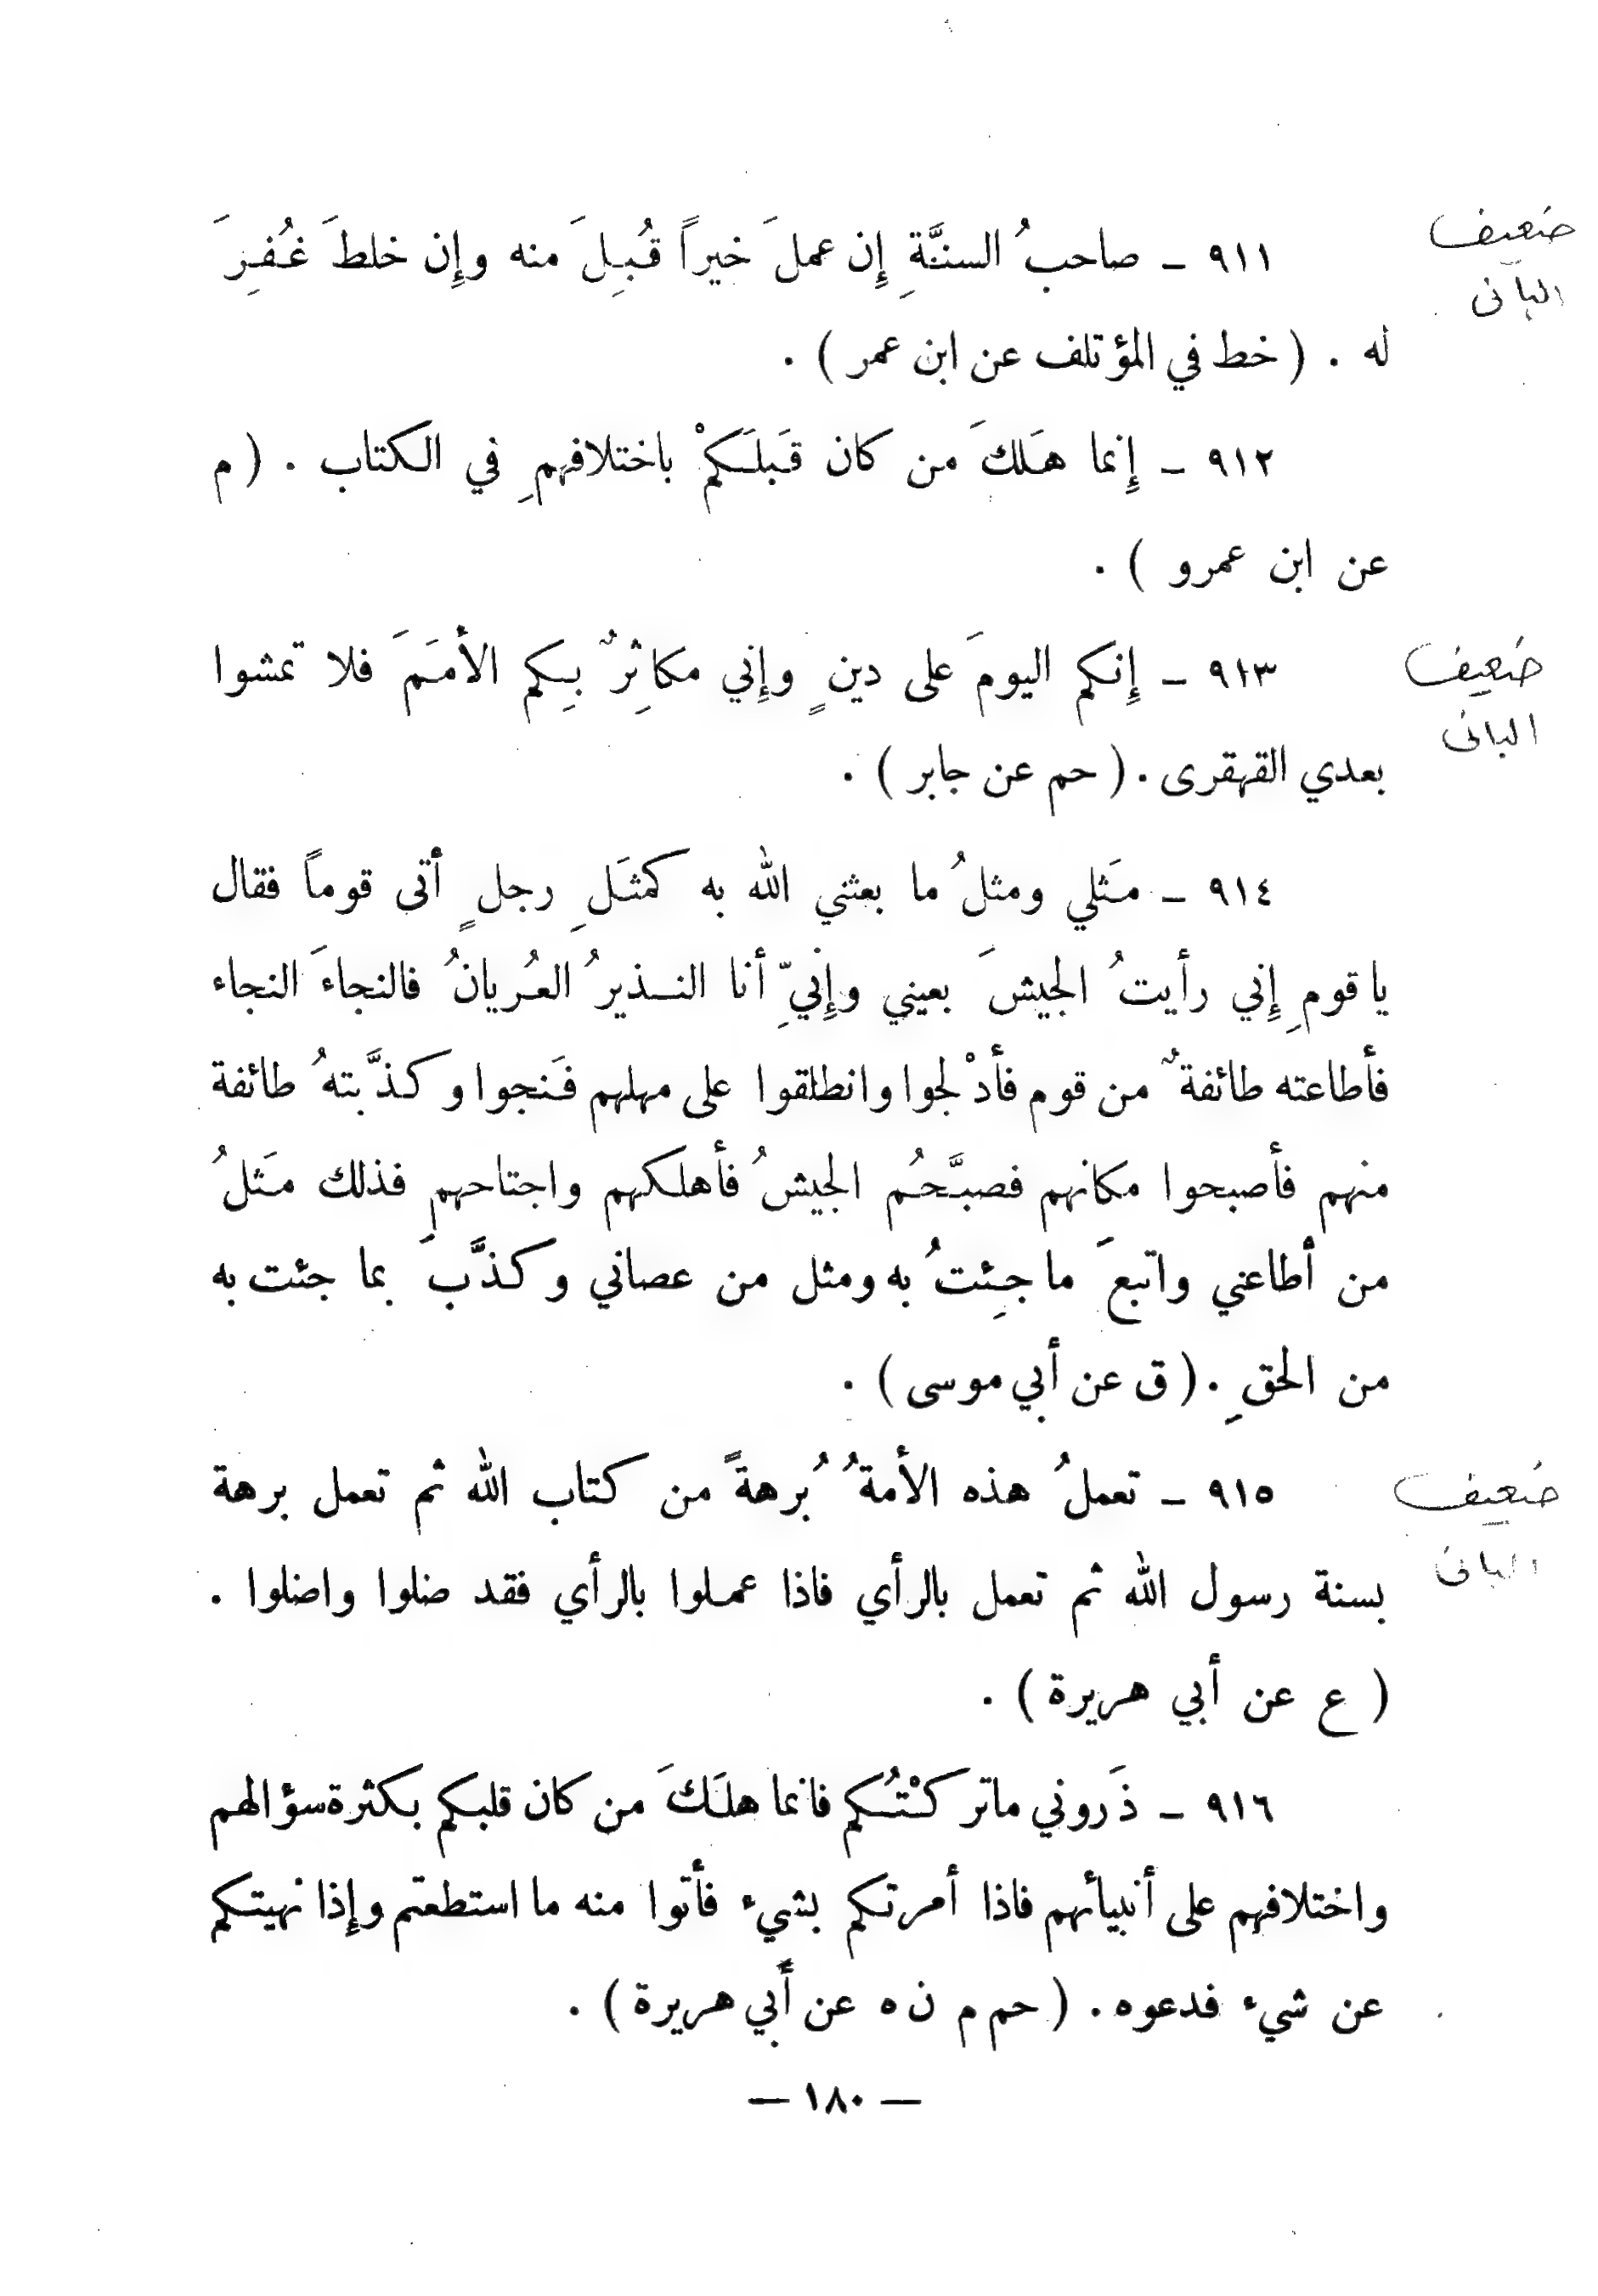 ضعيف
البانى
٩١١ ـ صاحبُ السنَّةِ إِن عملَ خيراً قُبِلَ منه وإِن خلطَ غُفِرَ
له . ( خط في المؤتلف عن ابن عمر ) .
٩١٢ ـ إِنما هَلكَ من كان قَبلَكمْ باختلافهمِ في الكتاب . ( م
عن ابن عمرو ) .
ضعيف
البانى
٩١٣ ـ إِنكم اليومَ على دينٍ وإِني مكاثِرٌ بِكم الأمَمَ فلا تمشوا
بعدي القهقرى . ( حم عن جابر ) .
٩١٤ ـ مَثلي ومثلُ ما بعثني الله به كمثَلِ رجلٍ أتى قوماً فقال
يا قومِ إِني رأيتُ الجيشَ بعيني وإِنيِّ أنا النذيرُ العُريانُ فالنجاءَ النجاء
فأطاعته طائفةٌ من قوم فأدْلجوا وانطلقوا على مهلهم فَنجوا وكذَّبتهُ طائفة
منهم فأصبحوا مكانهم فصبَّحُم الجيشُ فأهلكهم واجتاحهم فذلك مَثلُ
من أطاعني واتبعَ ما جِئتُ به ومثل من عصاني وكذَّبَ بما جئت به
من الحقِ . ( ق عن أبي موسى ) .
ضعيف
البانى
٩١٥ ـ تعملُ هذه الأمةُ بُرهةً من كتاب الله ثم تعمل برهة
بسنة رسول الله ثم تعمل بالرأي فاذا عملوا بالرأي فقد ضلوا واضلوا .
( ع عن أبي هريرة ) .
٩١٦ ـ ذَروني ماتركْتُكم فانما هلَكَ من كان قلبكم بكثرة سؤالهم
واختلافهم على أنبيائهم فاذا أمرتكم بشيء فأتوا منه ما استطعتم وإِذا نهيتكم
عن شيء فدعوه . ( حم م ن ه عن أبي هريرة ) .
— ١٨٠ —